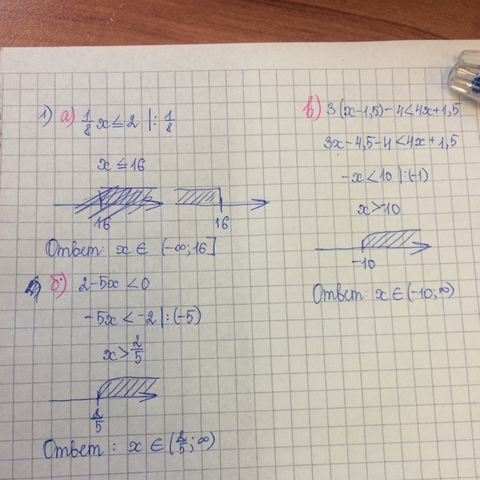 1) а) 1/8 x ≤ 2 |: 1/8
x ≤ 16
16
16
Ответ: x ∈ (-∞; 16]
б) 2-5x < 0
-5x < -2 |: (-5)
x > 2/5
2/5
Ответ: x ∈ (2/5; ∞)
в) 3(x-1,5)-4<4x+1,5
3x-4,5-4<4x+1,5
-x<10 |:(-1)
x>10
-10
Ответ: x ∈ (-10; ∞)